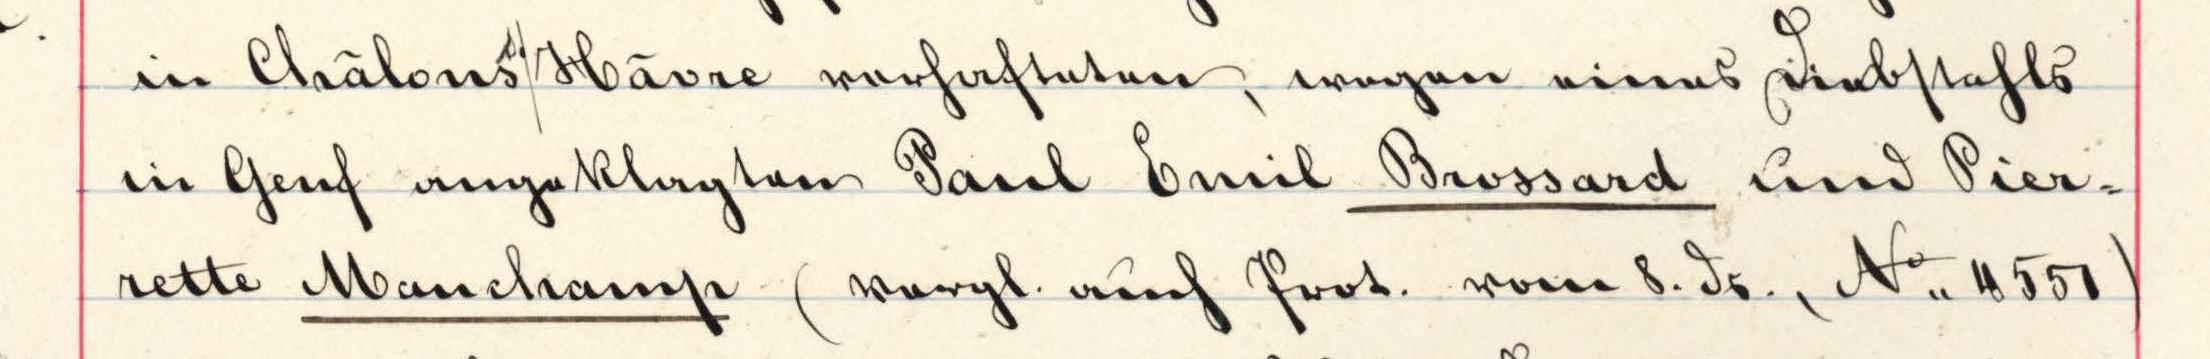 in Châlons s/Hâvre verhafteten, wegen eines Diebstahls
in Genf angeklagten Paul Emil Brossard und Pier-
rette Manchamp (vergl. auch Prot. vom 8. ds., No. 4551)